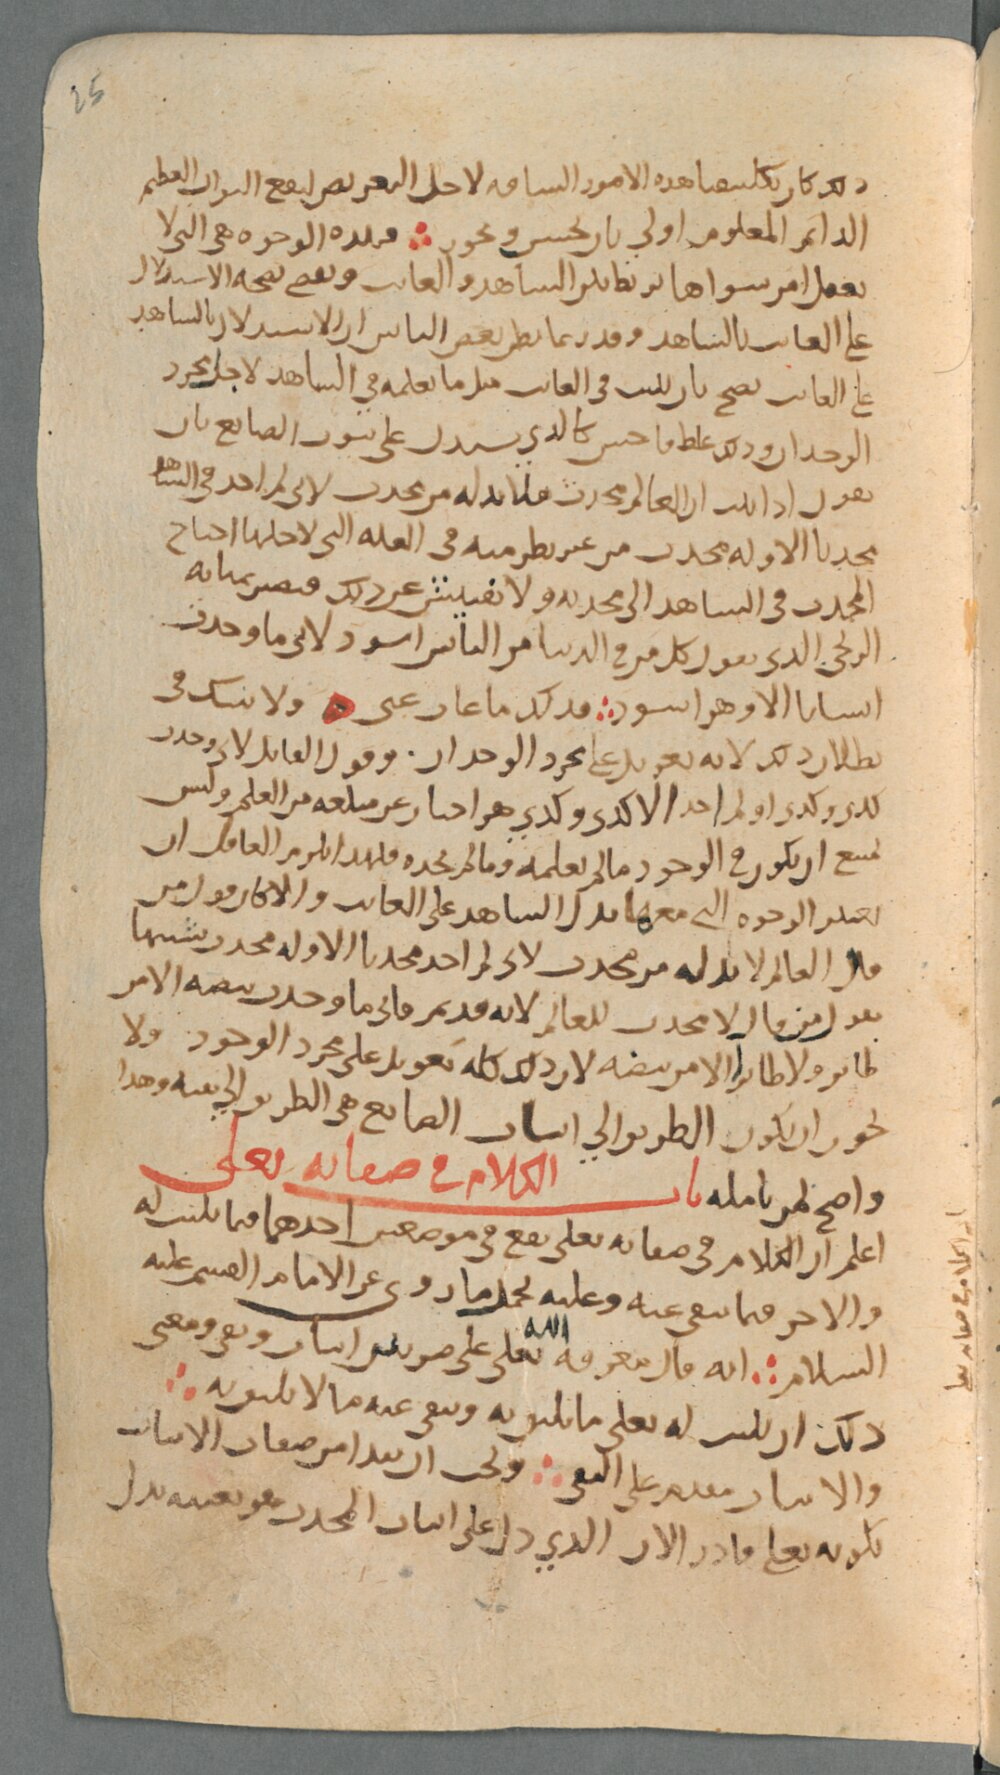 25
ذلك كان تكليفنا هذه الامور الشاقه لاجل التعريض لنفع الثواب العظيم
الدائم المعلوم اولى بان يحسن ويجوز ∴ فهذه الوجوه هي التي لا
يعقل امر سواها تربط بين الشاهد والغائب وتقضي بصحه الاستدلال
على الغائب بالشاهد وقد ربما يظن بعض الناس ان الاستدلال بالشاهد
على الغائب يصح بان يثبت في الغائب مثل ما نعلمه في الشاهد لاجل مجرد
الوجدان وذلك غلط فاحش كالذي يستدل على ثبوت الصانع بان
يقول اذا ثبت ان العالم محدث فلا بد له من محدث لاني لم اجد في الشاهد
محدثا الا وله محدث من غير نظر منه في العله التي لاجلها احتاج
المحدث في الشاهد الى محدثه ولا تفتيش عن ذلك فيصير بمثابه
الزنجي الذي يقول كل من في الدنيا من الناس اسود لاني ما وجدت
انسانا الا وهو اسود ∴ فكذلك ما غاب عني ه ولا شك في
بطلان ذلك لانه تعويل على مجرد الوجدان . وقول القائل لاني وجدت
كذى وكذى او لم اجد الا كذى وكذى هو اخبار عن مبلغه من العلم وليس
يمتنع ان يكون في الوجود ما لم نعلمه وما لم نجده فلهذا يلزم العاقل ان
يعتبر الوجوه التي معها يدل الشاهد على الغائب والا كان قول من
قال العالم لا بد له من محدث لاني لم اجد محدثا الا وله محدث شبيها
بقول من قال لا محدث للعالم لانه قديم فاني ما وجدت بيضه الا من
طائر ولا طائرا الا من بيضه لان ذلك كله تعويل على مجرد الوجود ولا
يجوز ان يكون الطريق الى اثبات الصانع هي الطريق الى نفيه وهذا
واضح لمن تامله باب الكلام في صفاته تعلى
اعلم ان الكلام في صفاته تعلى يقع في موضعين احدهما فيما يثبت له
والاخر فيما ينفى عنه وعليه يحمل ما روي عن الامام القسم عليه
السلام ∴ انه قال معرفه الله تعلى على ضربين اثبات ونفي ومعنى
ذلك ان يثبت له تعلى ما يليق به وينفى عنه ما لا يليق به ∴
والاثبات مقدم على النفي ∴ ويجب ان نبدا من صفات الاثبات
بكونه تعلى قادرا لان الذي دل على اثبات المحدث هو بعينه يدل
باب الكلام في صفاته تعلى